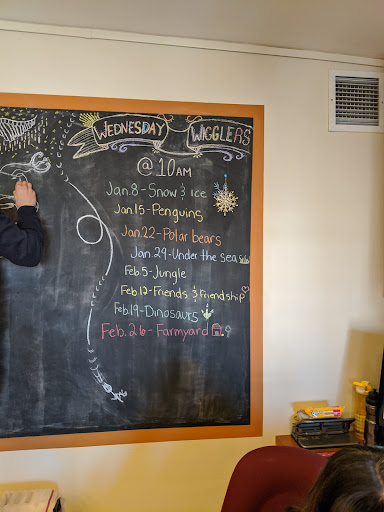 WEDNESDAY WIGGLERS
@ 10 AM
Jan. 8 - Snow & ice
Jan 15 - Penguins
Jan. 22 - Polar bears
Jan. 29 - Under the sea
Feb. 5 - Jungle
Feb. 12 - Friends & Friendship
Feb. 19 - Dinosaurs
Feb. 26 - Farmyard